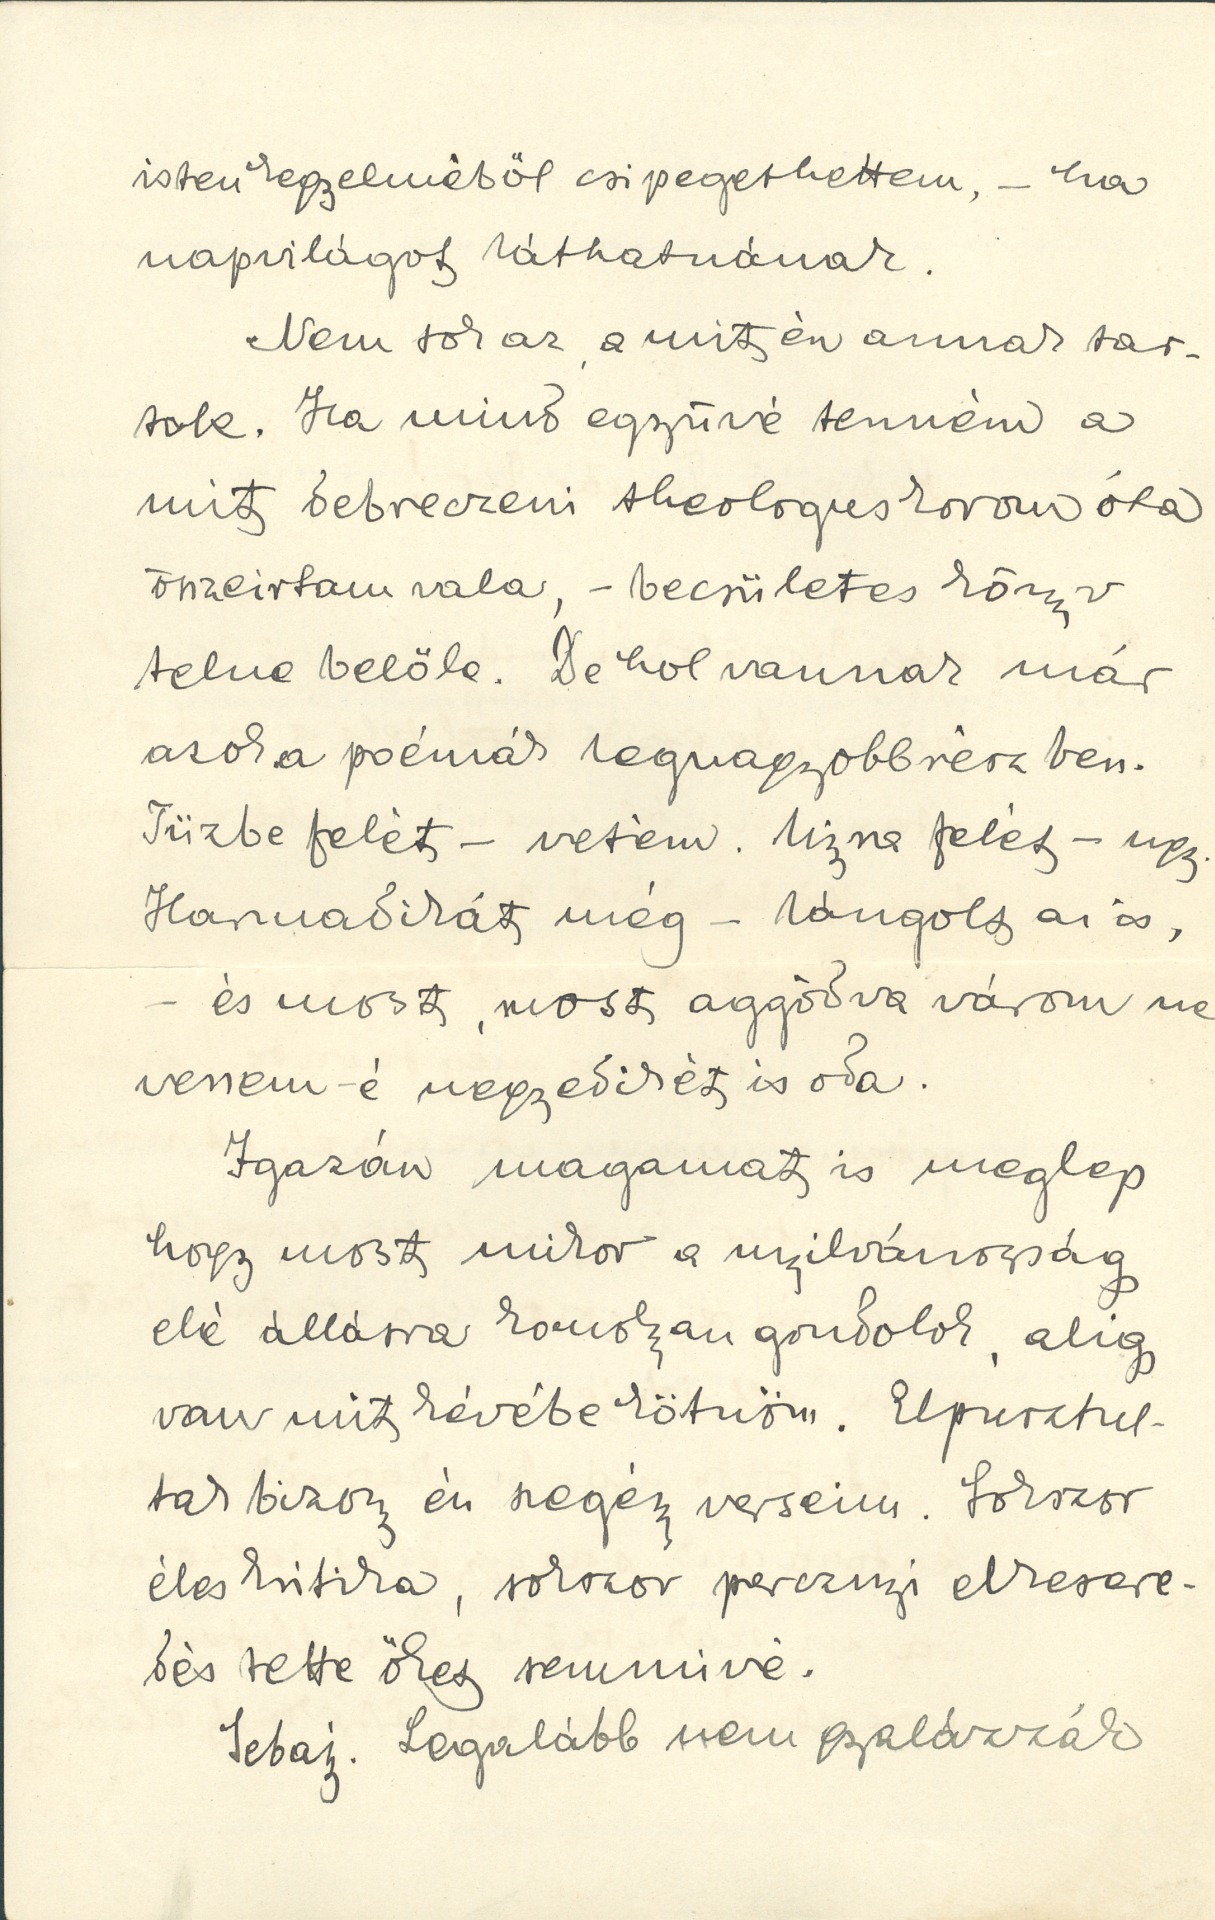 isten kegyelméből csipegethettem, – ha
napvilágot láthatnának.
Nem sok az, a mit én annak tar-
tok. Ha mind együvé tenném a
mit debreczeni theologus korom óta
összeirtam vala, – becsületes könyv
telne belőle. De hol vannak már
azok a poémák legnagyobb részben.
Tüzbe felét – vetém. Ujra felét – ugy.
Harmadikát még – lángolt az is,
– és most, most aggódva várom ne
vessem-é negyedikét is oda.
Igazán magamat is meglep
hogy most mikor a nyilvánosság
elé állásra komolyan gondolok, alig
van mit kévébe kötnöm. Elpusztul-
tak bizony én szegény verseim. Sokszor
éles kritika, sokszor percznyi elkesere-
dés tette őket semmivé.
Sebaj. Legalább nem gyalázzák